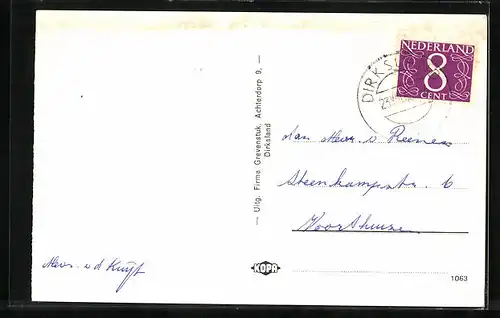 NEDERLAND
8
CENT
DIRKSL
23
— Uitg. Firma Grevenstuk, Achterdorp 9, —
Dirksland
Aan Mevr. v Reenen
Steenkampstr. 6
Voorthuizen
Mevr. v d Kuijt
KOPA
1063